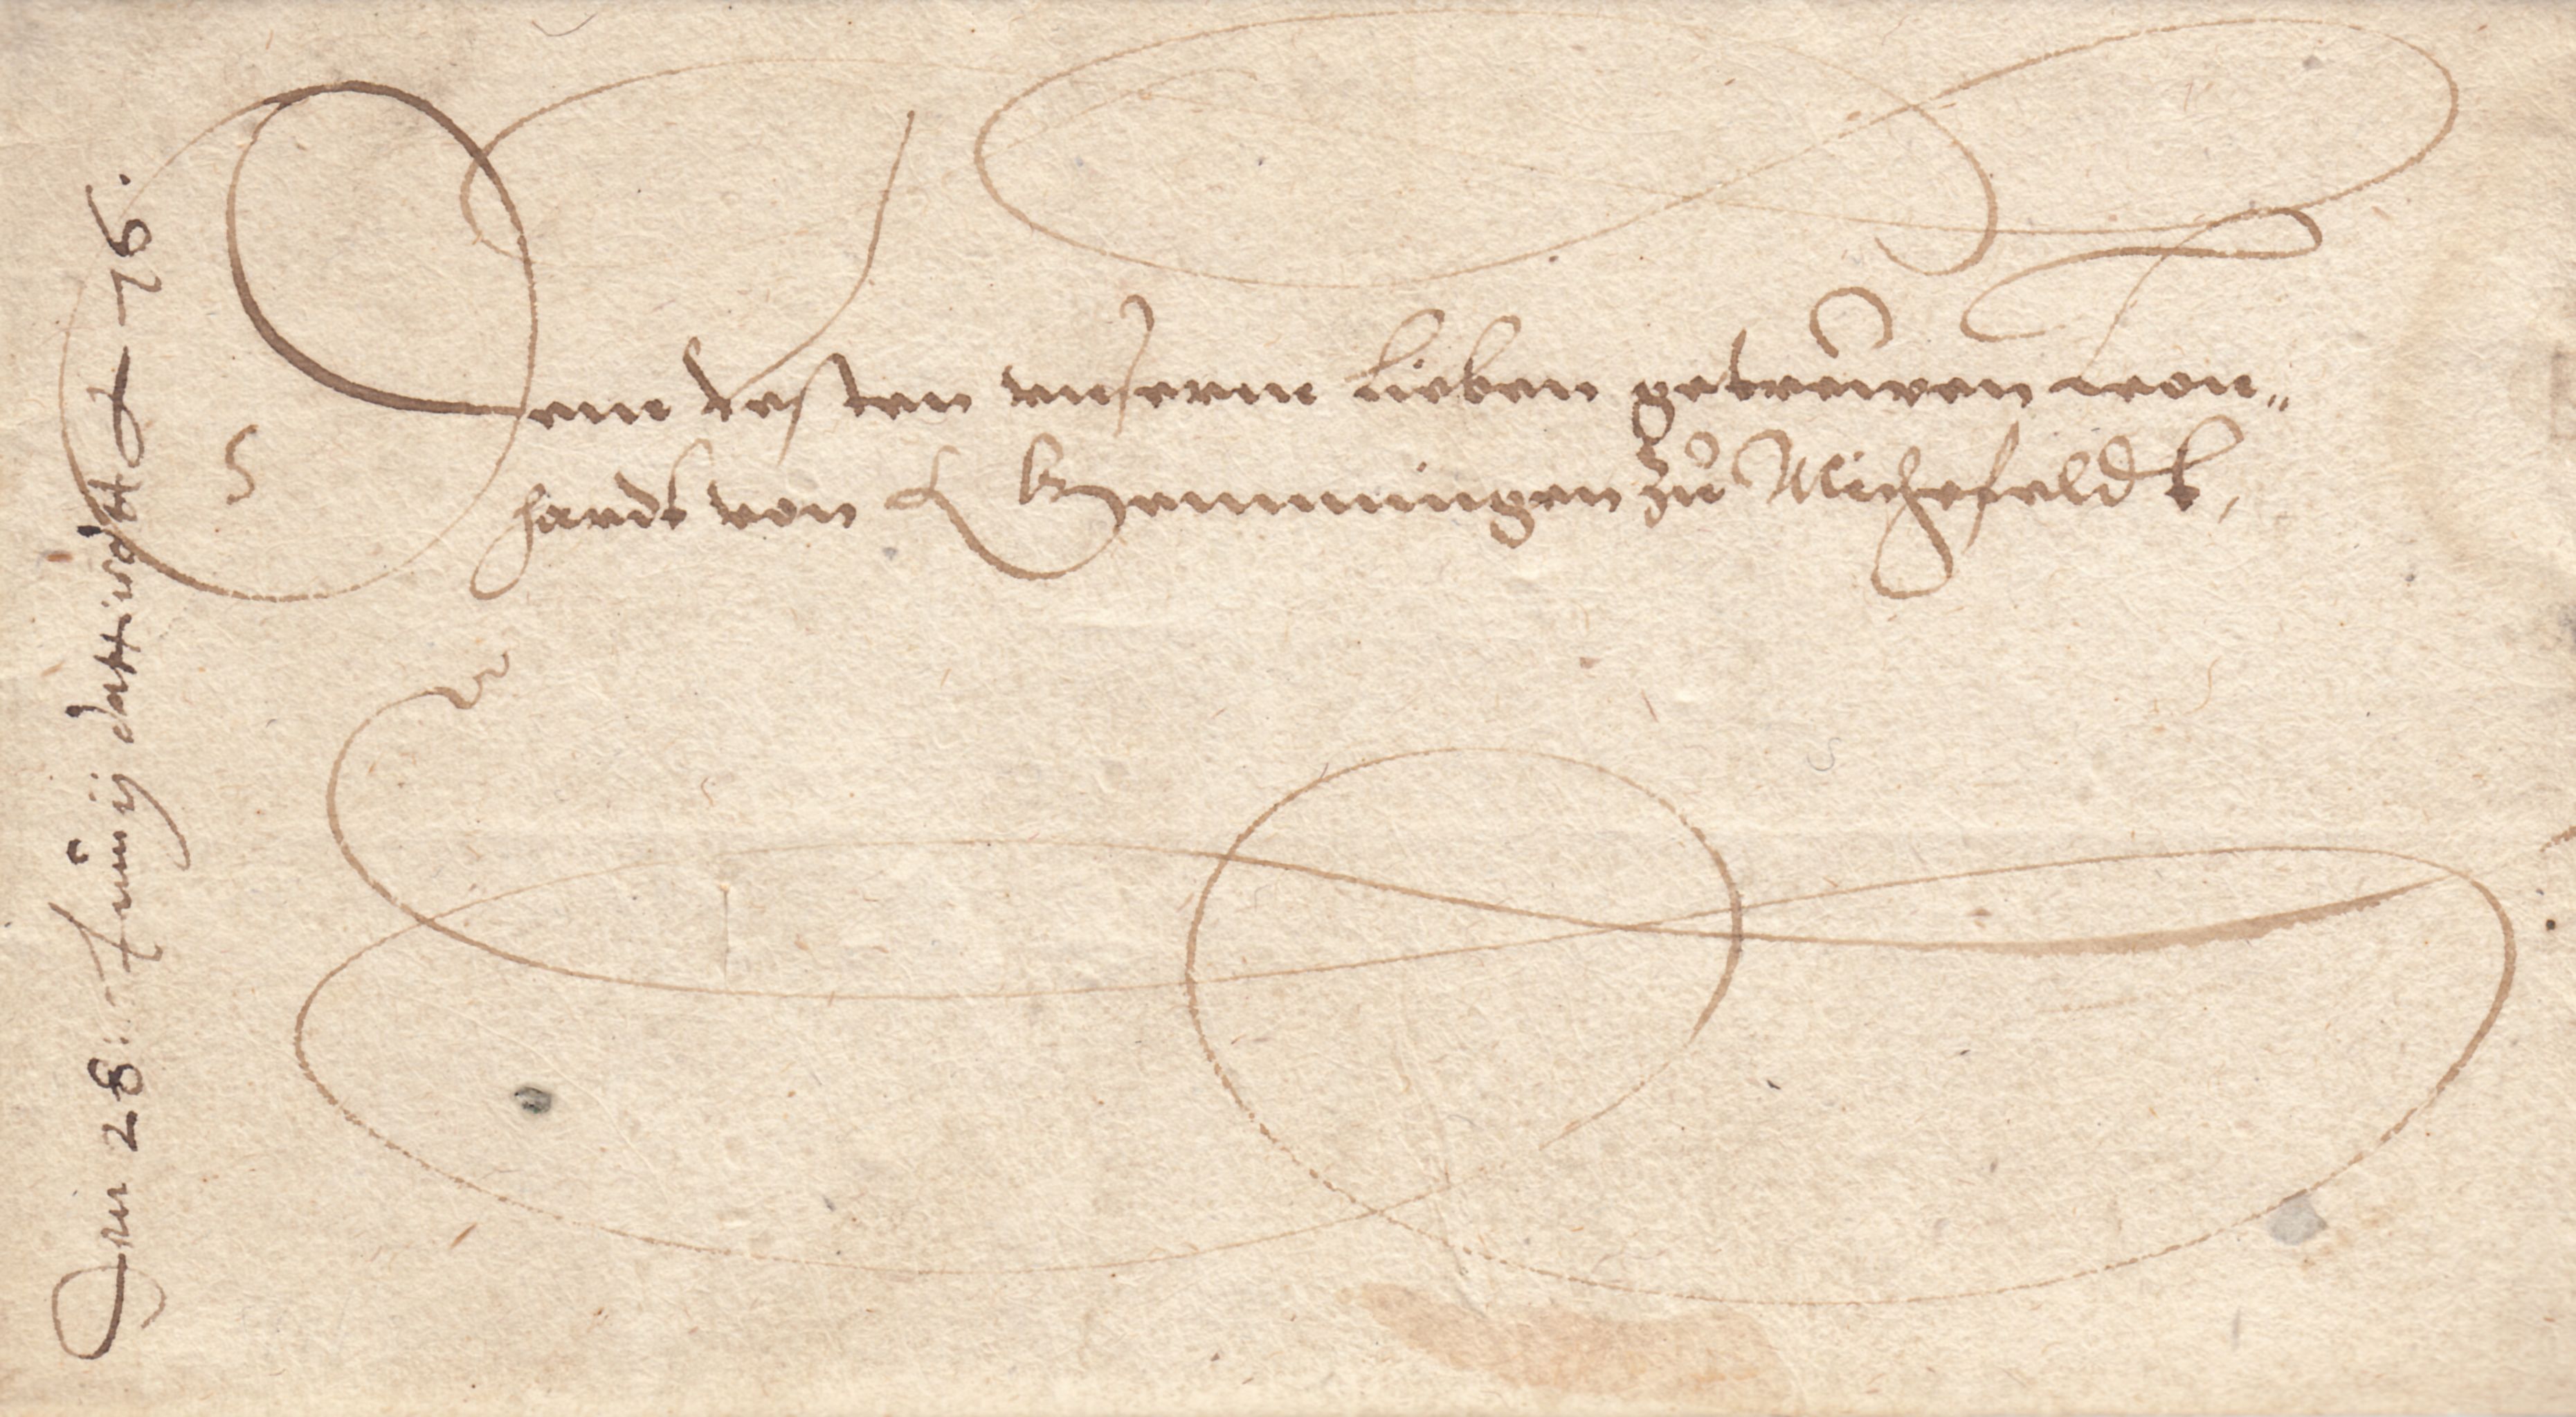 Dem vesten vnserm lieben getrewen Leon„
hardt von Gemmingen zu Michefeldt,
28. Junij 76.